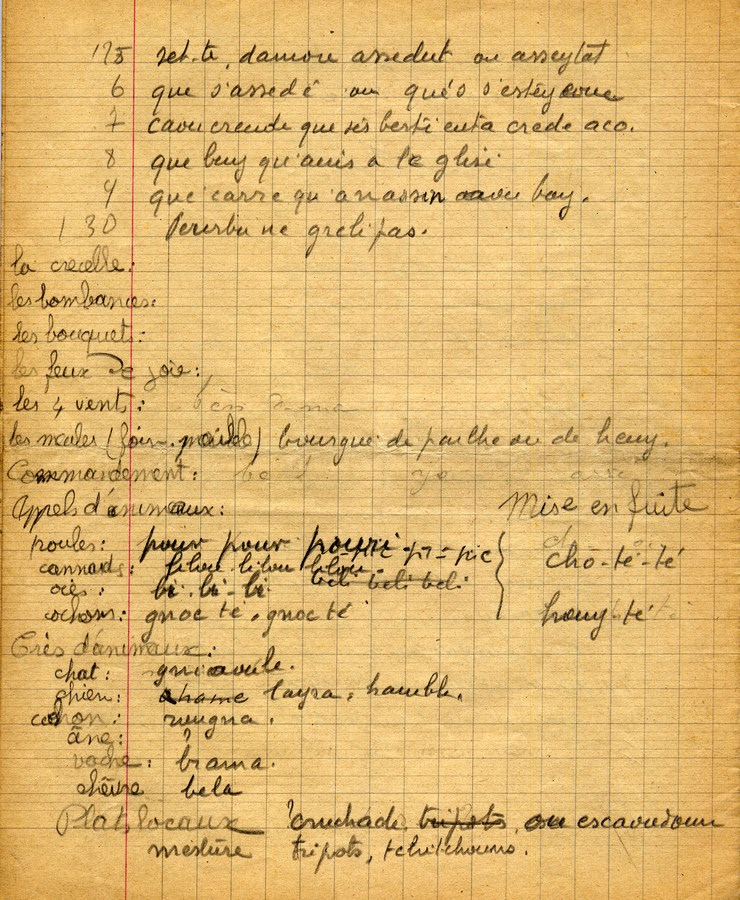 125 set-te, damou assedut ou asseytat
6 que s'assedê ou qués s'estéy
7 caou creude que sés bestï enta crede aco.
8 que buy qu'anis a le glisi
9 que carre qu'anassin bay.
130 ne greli pas.
la crecelle:
les bombances:
les bouquets:
les feux de joie:
les 4 vents:
les meules (foin. paille) bourgue de pailhe ou de heuy.
Commandement:
Appels d'animaux: Mise en fuite
poules: pour pour pouri - pic - pi = pic
cannards: lilou. lilou lilou.
oies: bi. bi - bi beli beli beli
chō-té-té
cochons: gnoc té. gnoc té
houy-té
Cris d'animaux:
chat: gniaoule.
chien: layra, hamble.
cochon: rougna.
âne: ?
vache: brama.
chèvre bela
Plats locaux cruchade tripots, ou escaoudoun
mesture tripots, tchitchouns.